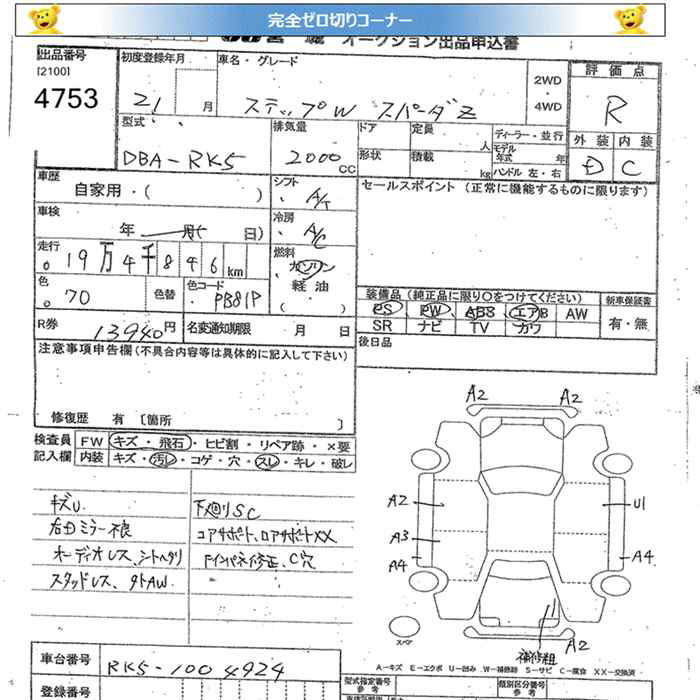 完全ゼロ切りコーナー
オークション出品申込書
出品番号 初度登録年月 車名・グレード 2WD・4WD 評価点
[2100]
4753 21 月 ステップW スパーダZ R
型式 排気量 ドア 定員 人 ディーラー・並行 外装 内装
DBA-RK5 2000 CC 形状 積載 kg モデル年式 年 ハンドル 左・右 D C
車歴 自家用・( ) シフト A/T セールスポイント (正常に機能するものに限ります)
車検 年 月( 日) 冷房 A/C
走行 19万4千846km 燃料 ガソリン
色 70 色替 色コード PB81P 軽油 ( )
装備品 (純正品に限り〇をつけてください) 新車保証書
PS PW ABS エアB AW 有・無
R券 13940円 名変通知期限 月 日 SR ナビ TV カワ
注意事項申告欄(不具合内容等は具体的に記入して下さい) 後日品
修復歴 有 〔箇所 〕
検査員 FW キズ・飛石・ヒビ割・リペア跡・×要
記入欄 内装 キズ・汚レ・コゲ・穴・スレ・キレ・破レ
A2 A2
キズU 下廻りSC
右田ミラー不良 コアサポート、ロアサポートXX
オーディオレス、シートヘタリ Fインパネイ修正、C穴
スタッドレス、外AW
A2 U1
A3
A4 A4
スペア 補修粗 A2
A-キズ E-エクボ U-凹み W-補修跡 S-サビ C-腐食 XX-交換済
車台番号 RK5-1004924
型式指定番号 参考 類別区分番号 参考
登録番号